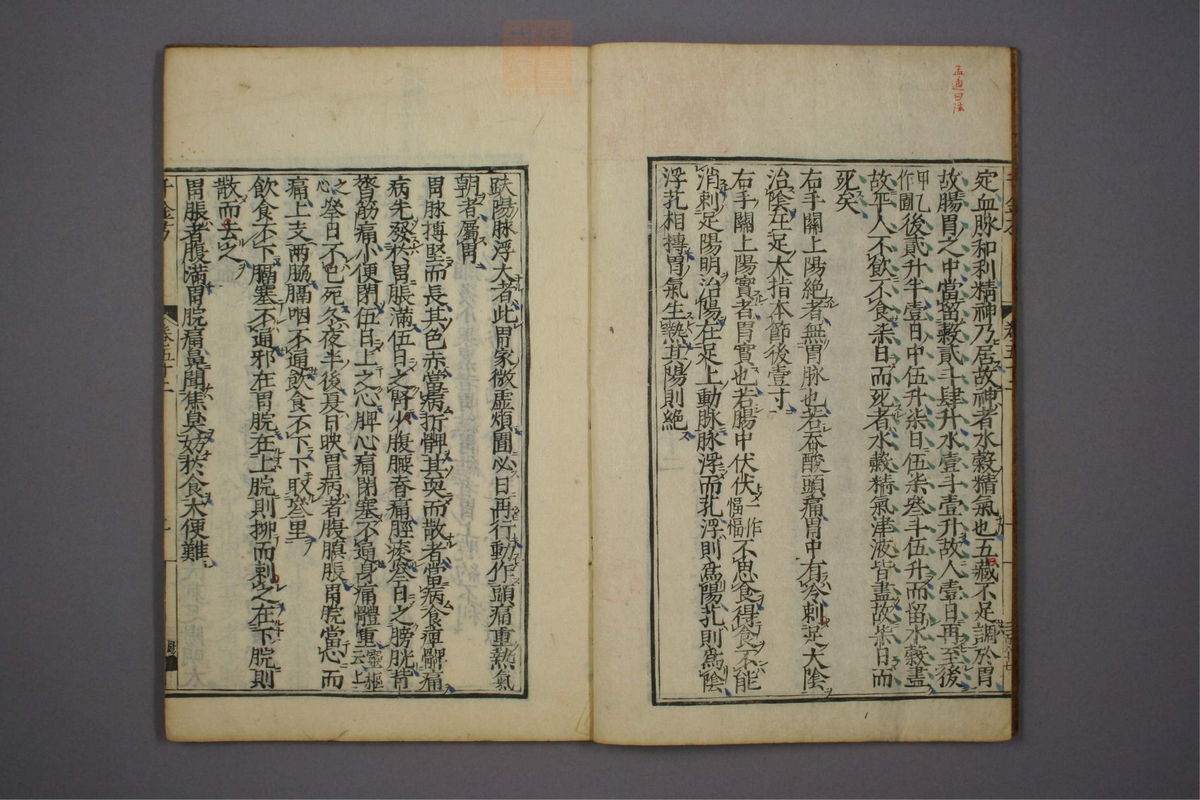 孟迥曰法
定血脉和利精神乃居故神者水穀精氣也五藏不足調於胃
故腸胃之中當留穀貳斗肆升水壹斗壹升故人壹日再至後
甲乙作圊後貳升半壹日中伍升柒日伍柒叁斗伍升而留水穀盡
故平人不飲不食柒日而死者水穀精氣津液皆盡故柒日而
死矣
右手關上陽絕者無胃脉也若吞酸頭痛胃中有冷刺足太陰
治陰在足大指本節後壹寸
右手關上陽實者胃實也若腸中伏伏一作愊愊不思食得食不能
消刺足陽明治陽在足上動脉脉浮而芤浮則爲陽芤則爲陰
浮芤相摶胃氣生熱其陽則絕
趺陽脉浮大者此胃家微虛煩圊必日再行動作頭痛重熱氣
朝者屬胃
胃脉搏堅而長其色赤當病折髀其耎而散者當病食痺髕痛
病先發於胃脹滿伍日之腎少腹腰脊痛脛痠叁日之膀胱背
膂筋痛小便閉伍日上之心脾心痛閉塞不通身痛體重靈樞云上
之心叁日不已死冬夜半後夏日昳胃病者腹䐜脹胃脘當心而
痛上支兩脇膈咽不通飲食不下下取叁里
飲食不下膈塞不通邪在胃脘在上脘則抑而刺之在下脘則
散而去之
胃脹者腹滿胃脘痛鼻聞焦臭妨於食大便難